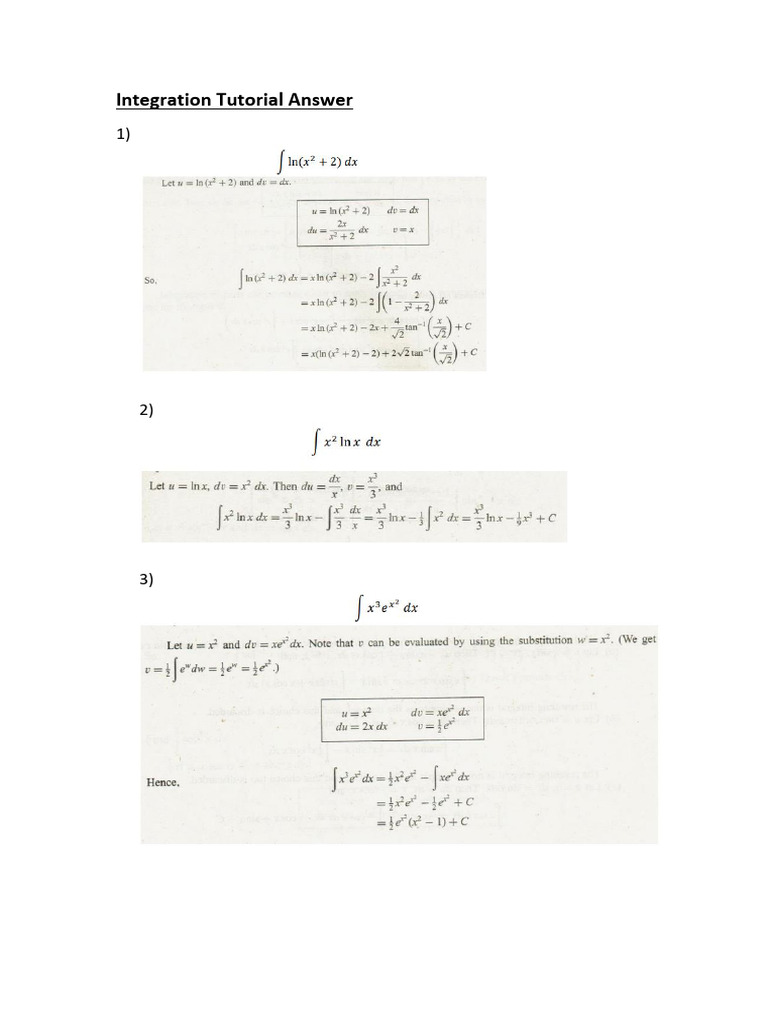 Integration Tutorial Answer
1)
∫ ln(x² + 2) dx
Let u = ln (x² + 2) and dv = dx.
u = ln (x² + 2) dv = dx
du = 2x/(x² + 2) dx v = x
So, ∫ ln (x² + 2) dx = x ln (x² + 2) − 2 ∫ x²/(x² + 2) dx
= x ln (x² + 2) − 2 ∫ (1 − 2/(x² + 2)) dx
= x ln (x² + 2) − 2x + 4/√2 tan⁻¹ (x/√2) + C
= x(ln (x² + 2) − 2) + 2√2 tan⁻¹ (x/√2) + C
2)
∫ x² ln x dx
Let u = ln x, dv = x² dx. Then du = dx/x, v = x³/3, and
∫ x² ln x dx = x³/3 ln x − ∫ x³/3 dx/x = x³/3 ln x − 1/3 ∫ x² dx = x³/3 ln x − 1/9 x³ + C
3)
∫ x³e^(x²) dx
Let u = x² and dv = xe^(x²) dx. Note that v can be evaluated by using the substitution w = x². (We get
v = ½ ∫ e^w dw = ½e^w = ½e^(x²).)
u = x² dv = xe^(x²) dx
du = 2x dx v = ½e^(x²)
Hence, ∫ x³e^(x²) dx = ½x²e^(x²) − ∫ xe^(x²) dx
= ½x²e^(x²) − ½e^(x²) + C
= ½e^(x²)(x² − 1) + C